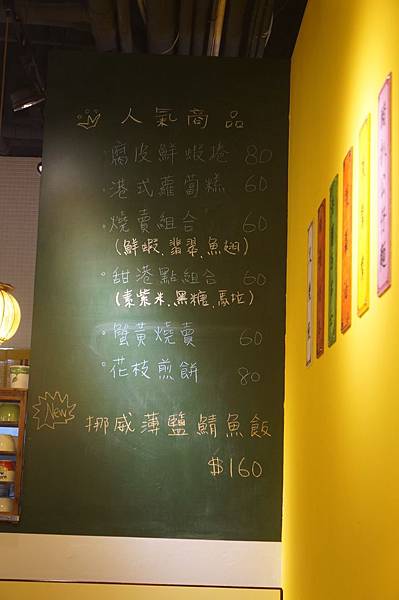 人氣商品
腐皮鮮蝦捲 80
港式蘿蔔糕 60
燒賣組合 60
(鮮蝦.翡翠.魚翅)
甜港點組合 60
(素紫米.黑糖.馬拉)
蟹黃燒賣 60
花枝煎餅 80
New
挪威薄鹽鯖魚飯
$160